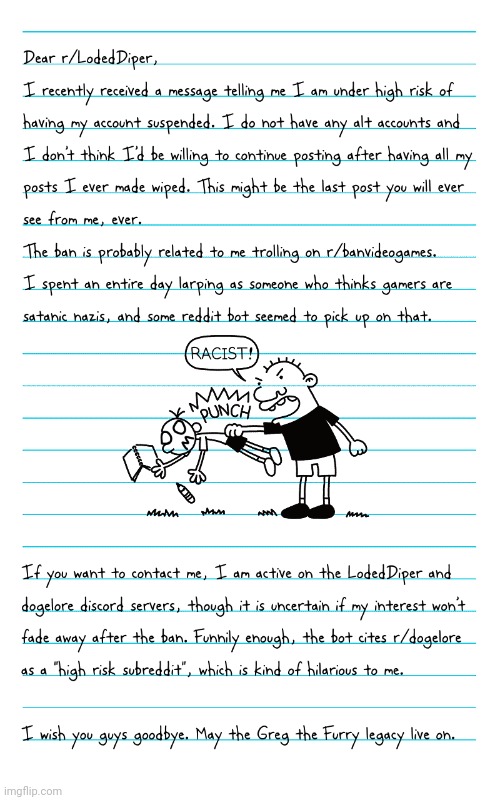 Dear r/LodedDiper,
I recently received a message telling me I am under high risk of
having my account suspended. I do not have any alt accounts and
I don't think I'd be willing to continue posting after having all my
posts I ever made wiped. This might be the last post you will ever
see from me, ever.
The ban is probably related to me trolling on r/banvideogames.
I spent an entire day larping as someone who thinks gamers are
satanic nazis, and some reddit bot seemed to pick up on that.
RACIST!
PUNCH
If you want to contact me, I am active on the LodedDiper and
dogelore discord servers, though it is uncertain if my interest won't
fade away after the ban. Funnily enough, the bot cites r/dogelore
as a "high risk subreddit", which is kind of hilarious to me.
I wish you guys goodbye. May the Greg the Furry legacy live on.
imgflip.com